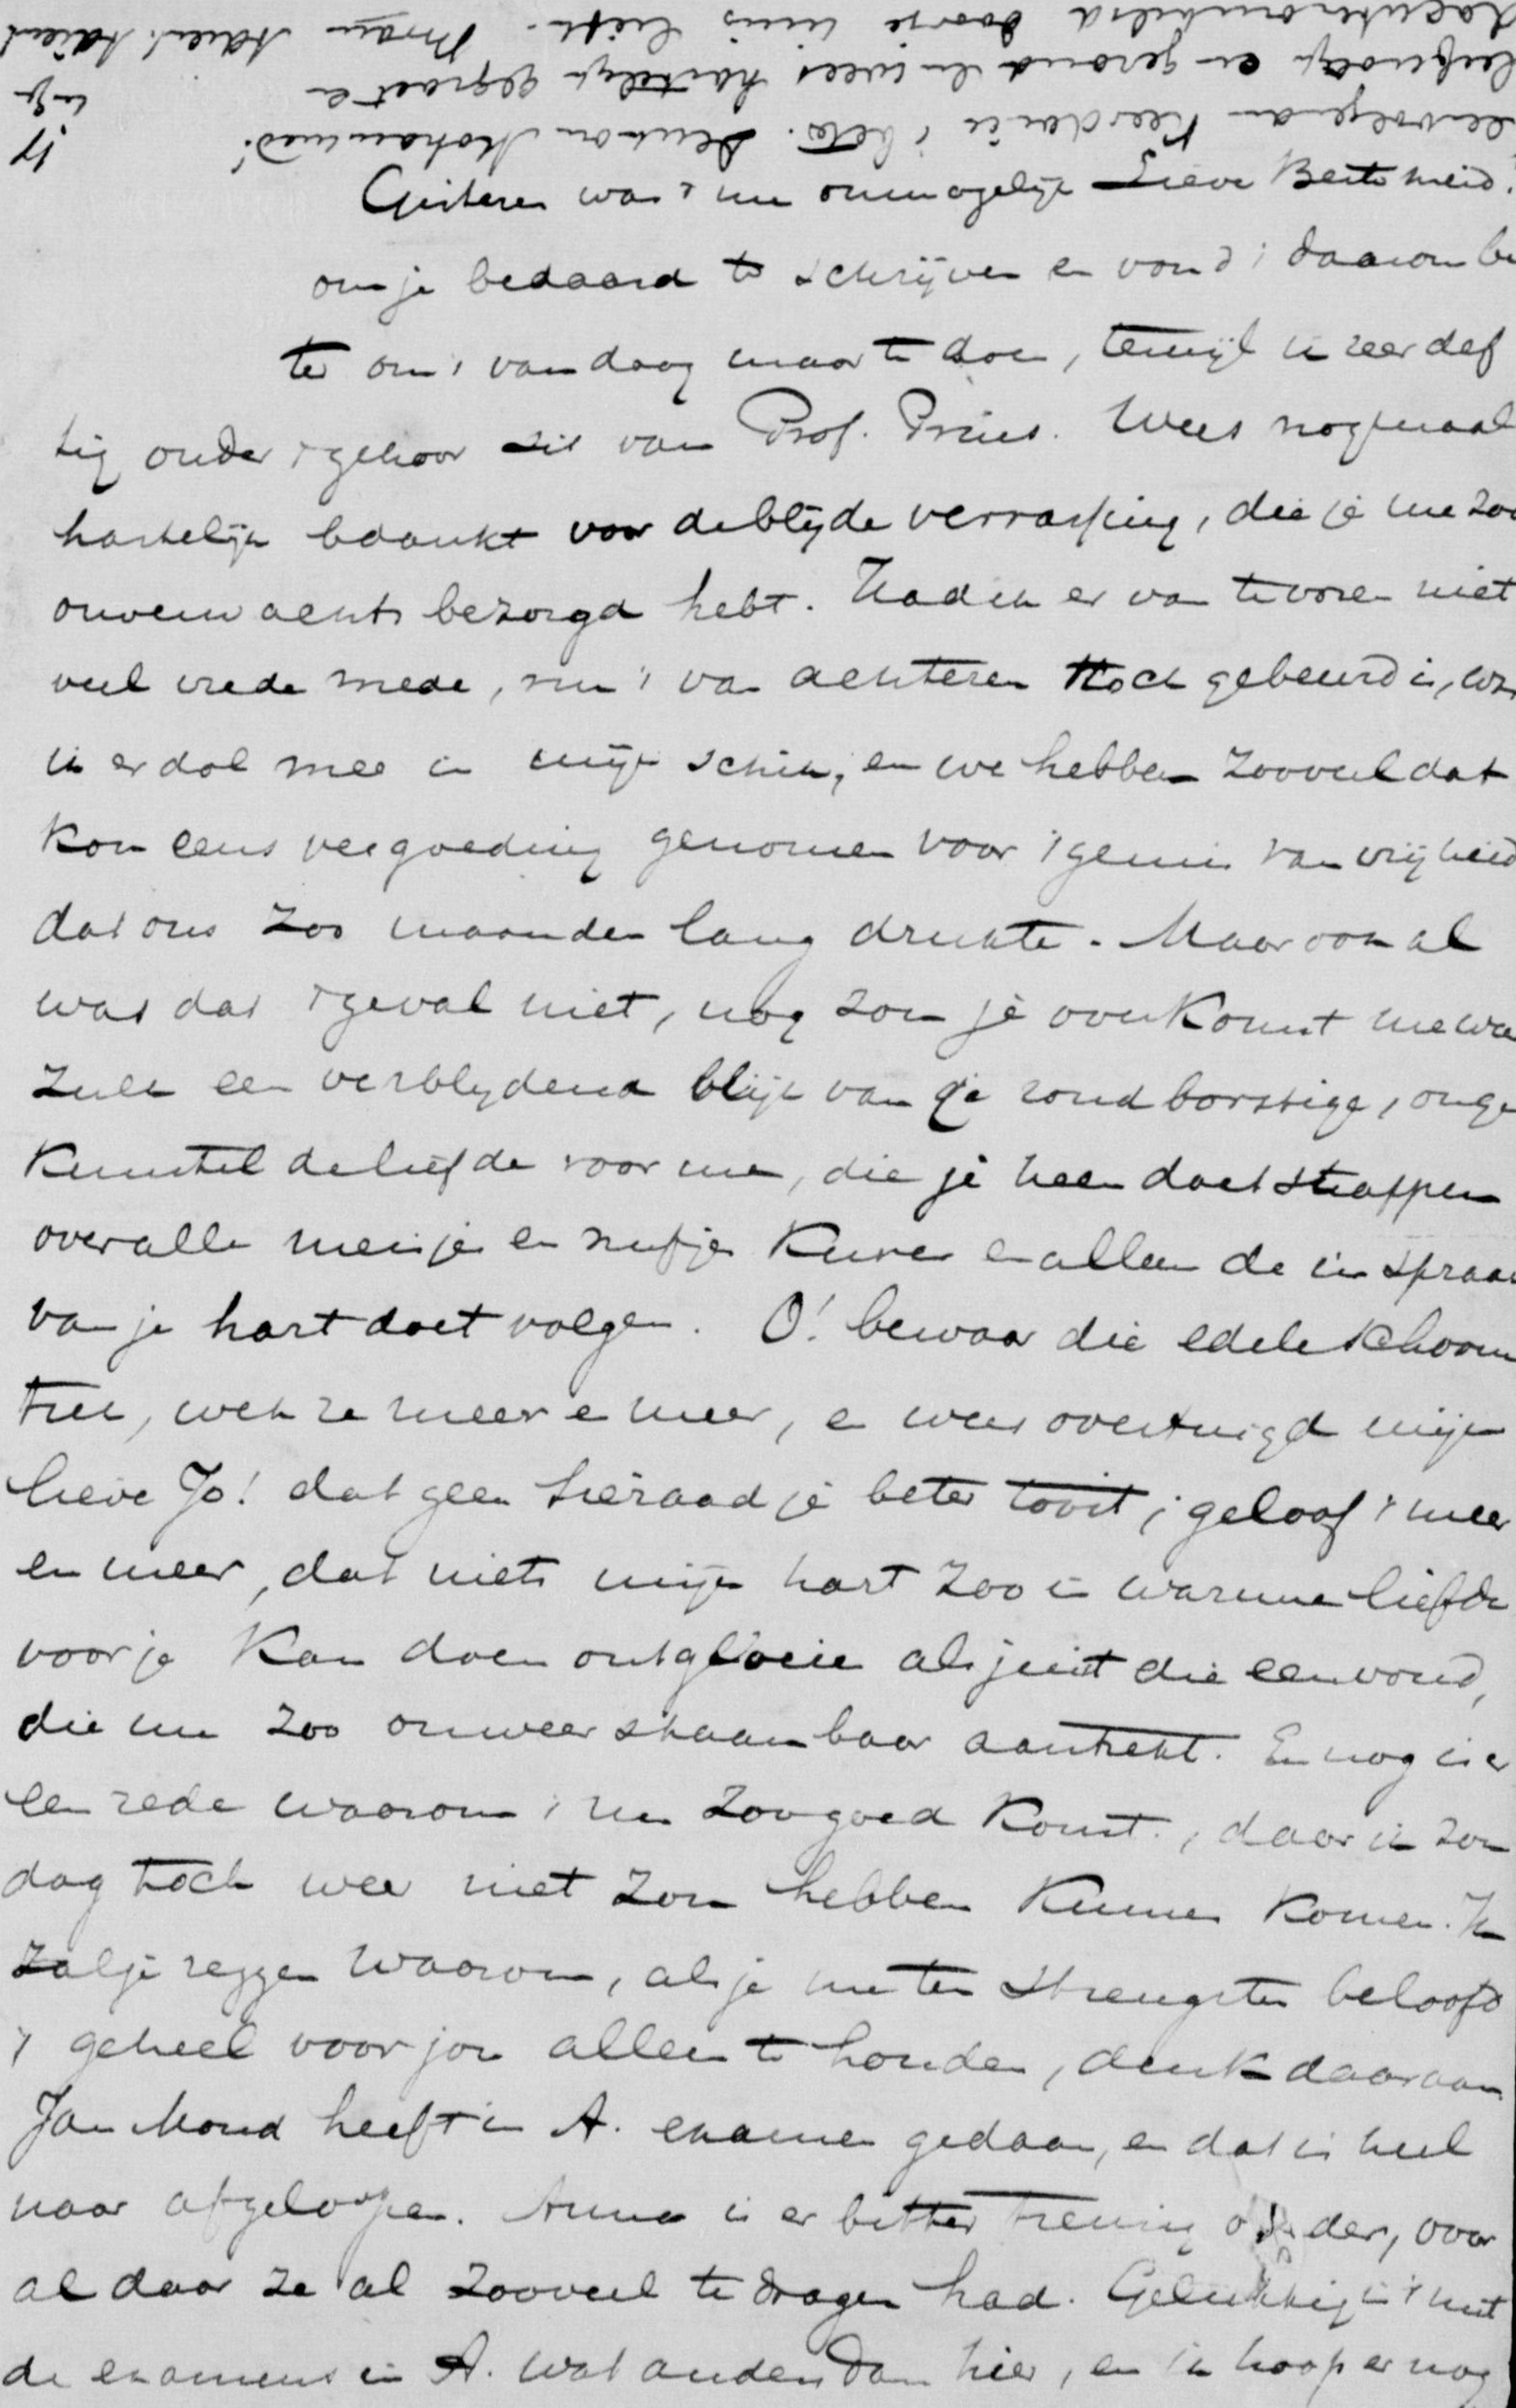 Gisteren was 't me onmogelijk Lieve Beste meid!
om je bedaard te schrijven en vond 't daarom be
ter om 't vandaag maar te doen, terwijl ik zeer def
tig onder 't gehoor zit van Prof. Prins. Wees nogmaal
hartelijk bedankt voor de blijde verrassing, die je me zoo
onverwachts bezorgd hebt. Had ik er van te voren niet
veel vrede mede, nu 't van achteren toch gebeurd is, was
ik er dol mee in mijn schik, en we hebben zooveel dat
kon eens vergoeding genomen voor 't gemis van vrijheid
dat ons zoo maanden lang drukte. Maar ook al
was dat 't geval niet, nog zou je overkomst me wa
zulk een verblijdend blijk van je rondborstige, onge
kunstelde liefde voor me, die je heen doet stappen
over alle meisjes en nufjes kuren en alleen de inspraak
van je hart doet volgen. O! bewaar die edele schoone
trek, wek ze meer en meer, en wees overtuigd mijn
lieve Jo! dat geen sieraad je beter tooit, geloof 't meer
en meer, dat niets mijn hart zoo in warme liefde
voor je kan doen ontgloeien als juist die eenvoud,
die me zoo onweerstaanbaar aantrekt. En nog is er
een rede waarom 't me zoo goed komt, daar ik Zon
dag toch weer niet zou hebben kunnen komen. Ik
zal je zeggen waarom, als je me ten strengste belooft
't geheel voor jou alleen te houden, denk daaraan
Jan Mond heeft in A. examen gedaan, en dat is heel
naar afgeloopen. Anna is er bitter treurig onder, voor
al daar ze al zooveel te dragen had. Gelukkig is 't met
de examens in A. wat anders dan hier, en ik hoop er nog